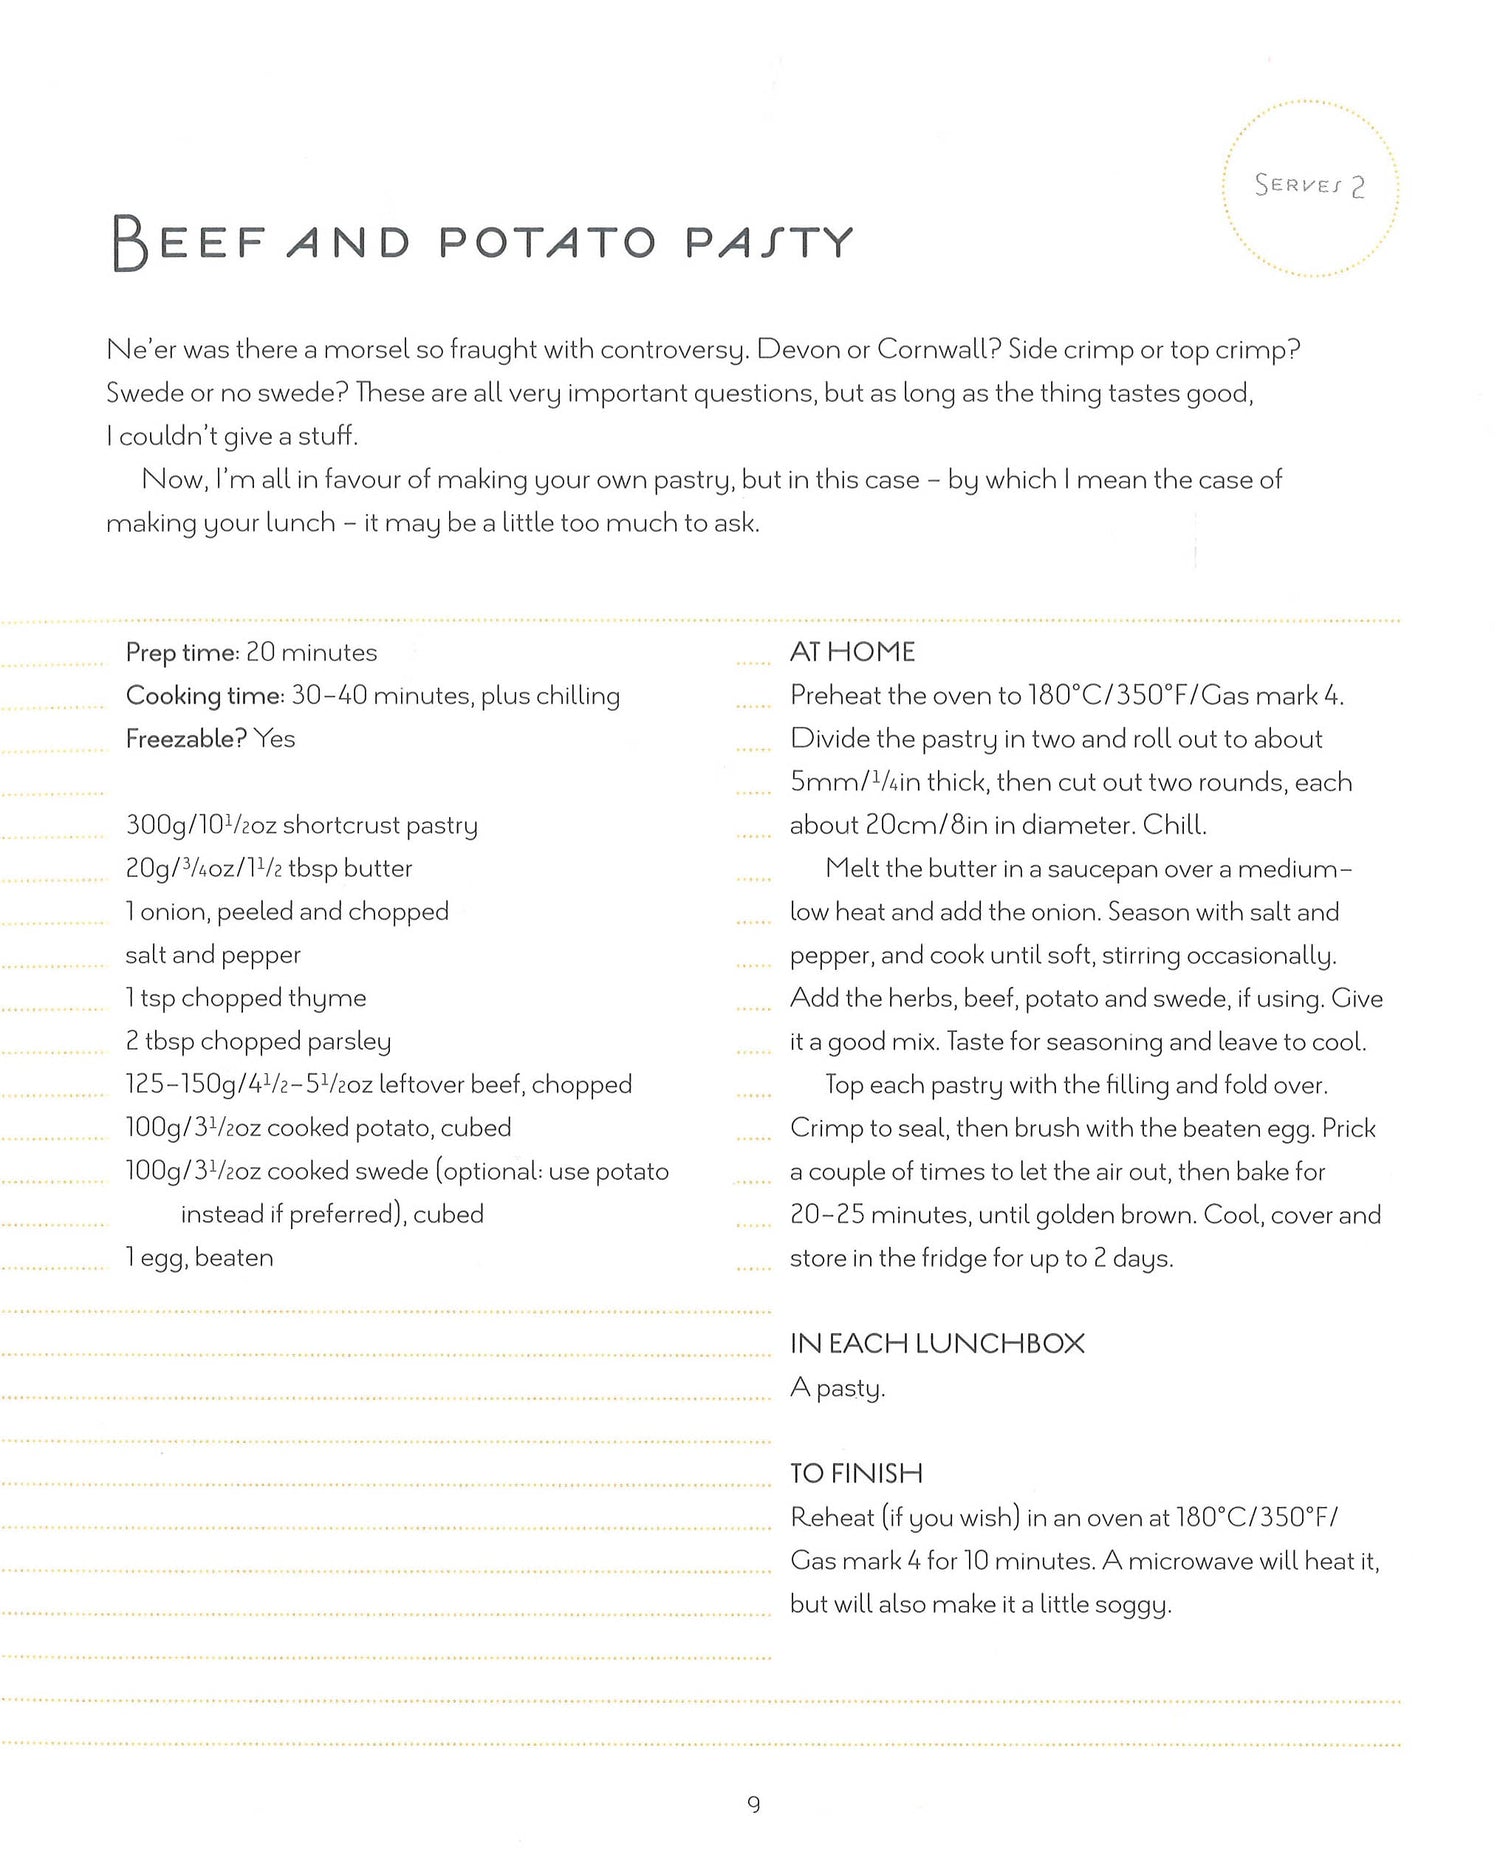 SERVES 2
BEEF AND POTATO PASTY
Ne'er was there a morsel so fraught with controversy. Devon or Cornwall? Side crimp or top crimp?
Swede or no swede? These are all very important questions, but as long as the thing tastes good,
I couldn't give a stuff.
Now, I'm all in favour of making your own pastry, but in this case – by which I mean the case of
making your lunch – it may be a little too much to ask.
Prep time: 20 minutes
Cooking time: 30–40 minutes, plus chilling
Freezable? Yes
300g/10½oz shortcrust pastry
20g/¾oz/1½ tbsp butter
1 onion, peeled and chopped
salt and pepper
1 tsp chopped thyme
2 tbsp chopped parsley
125–150g/4½–5½oz leftover beef, chopped
100g/3½oz cooked potato, cubed
100g/3½oz cooked swede (optional: use potato
instead if preferred), cubed
1 egg, beaten
AT HOME
Preheat the oven to 180°C/350°F/Gas mark 4.
Divide the pastry in two and roll out to about
5mm/¼in thick, then cut out two rounds, each
about 20cm/8in in diameter. Chill.
Melt the butter in a saucepan over a medium–
low heat and add the onion. Season with salt and
pepper, and cook until soft, stirring occasionally.
Add the herbs, beef, potato and swede, if using. Give
it a good mix. Taste for seasoning and leave to cool.
Top each pastry with the filling and fold over.
Crimp to seal, then brush with the beaten egg. Prick
a couple of times to let the air out, then bake for
20–25 minutes, until golden brown. Cool, cover and
store in the fridge for up to 2 days.
IN EACH LUNCHBOX
A pasty.
TO FINISH
Reheat (if you wish) in an oven at 180°C/350°F/
Gas mark 4 for 10 minutes. A microwave will heat it,
but will also make it a little soggy.
9